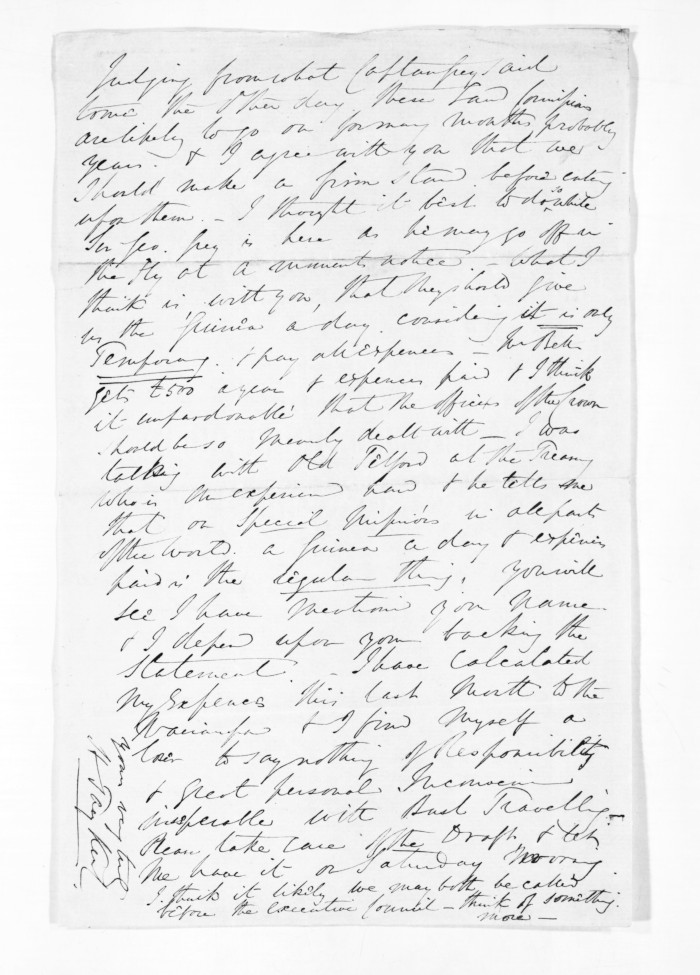 Judging from what Captain Grey said
to me the other day, these Land Commissions
are likely to go on for many months probably
years. & I agree with you that we
should make a firm stand before entering
upon them. - I thought it best to do so while
Sir Geo. Grey is here as he may go off in
the Fly at a moments notice. - What I
think is, with you, that they should give
us the Guinea a day, considering it is only
Temporary & pay all expences - Mr Bell
gets £500 a year & expences paid & I think
it unpardonable that the officers of the Crown
should be so meanly dealt with - I was
talking with Old Telford at the Treasury
who is an experienced hand & he tells me
that on Special Missions in all parts
of the world. a Guinea a day & expences
paid is the regular thing. You will
see I have mention'd your name
& I depend upon you backing the
statement. - I have calculated
my Expences this last Month to the
& I find myself a
loser to say nothing of Responsibility
& great personal Inconvenience
inseperable with Bush Travelling -
Please take care of the Draft & let
me have it on Saturday Morning.
I think it likely we may both be called
before the executive Council - think of something
more -
Yours very truly